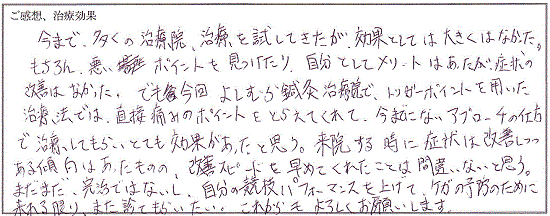 ご感想、治療効果
今まで、多くの治療院、治療を試してきたが、効果としては大きくはなかった。
もちろん、悪いポイントを見つけたり、自分としてメリットはあたが症状の
改善はなかた。でも今回よしむら鍼灸治療院で、トリガーポイントを用いた
治療法では、直接痛みのポイントをとらえてくれて、今までにないアプローチの仕方
で治療してもらい、とても効果があたと思う。来院する時に症状は改善しつつ
ある傾向はあたものの、改善スピードを早めてくれたことは間違いないと思う。
まだまだ、完治ではないし、自分の競技パフォーマンスを上げて、ケガの予防のために
来れる限り、また診てもらいたい。これからもよろしくお願いします。